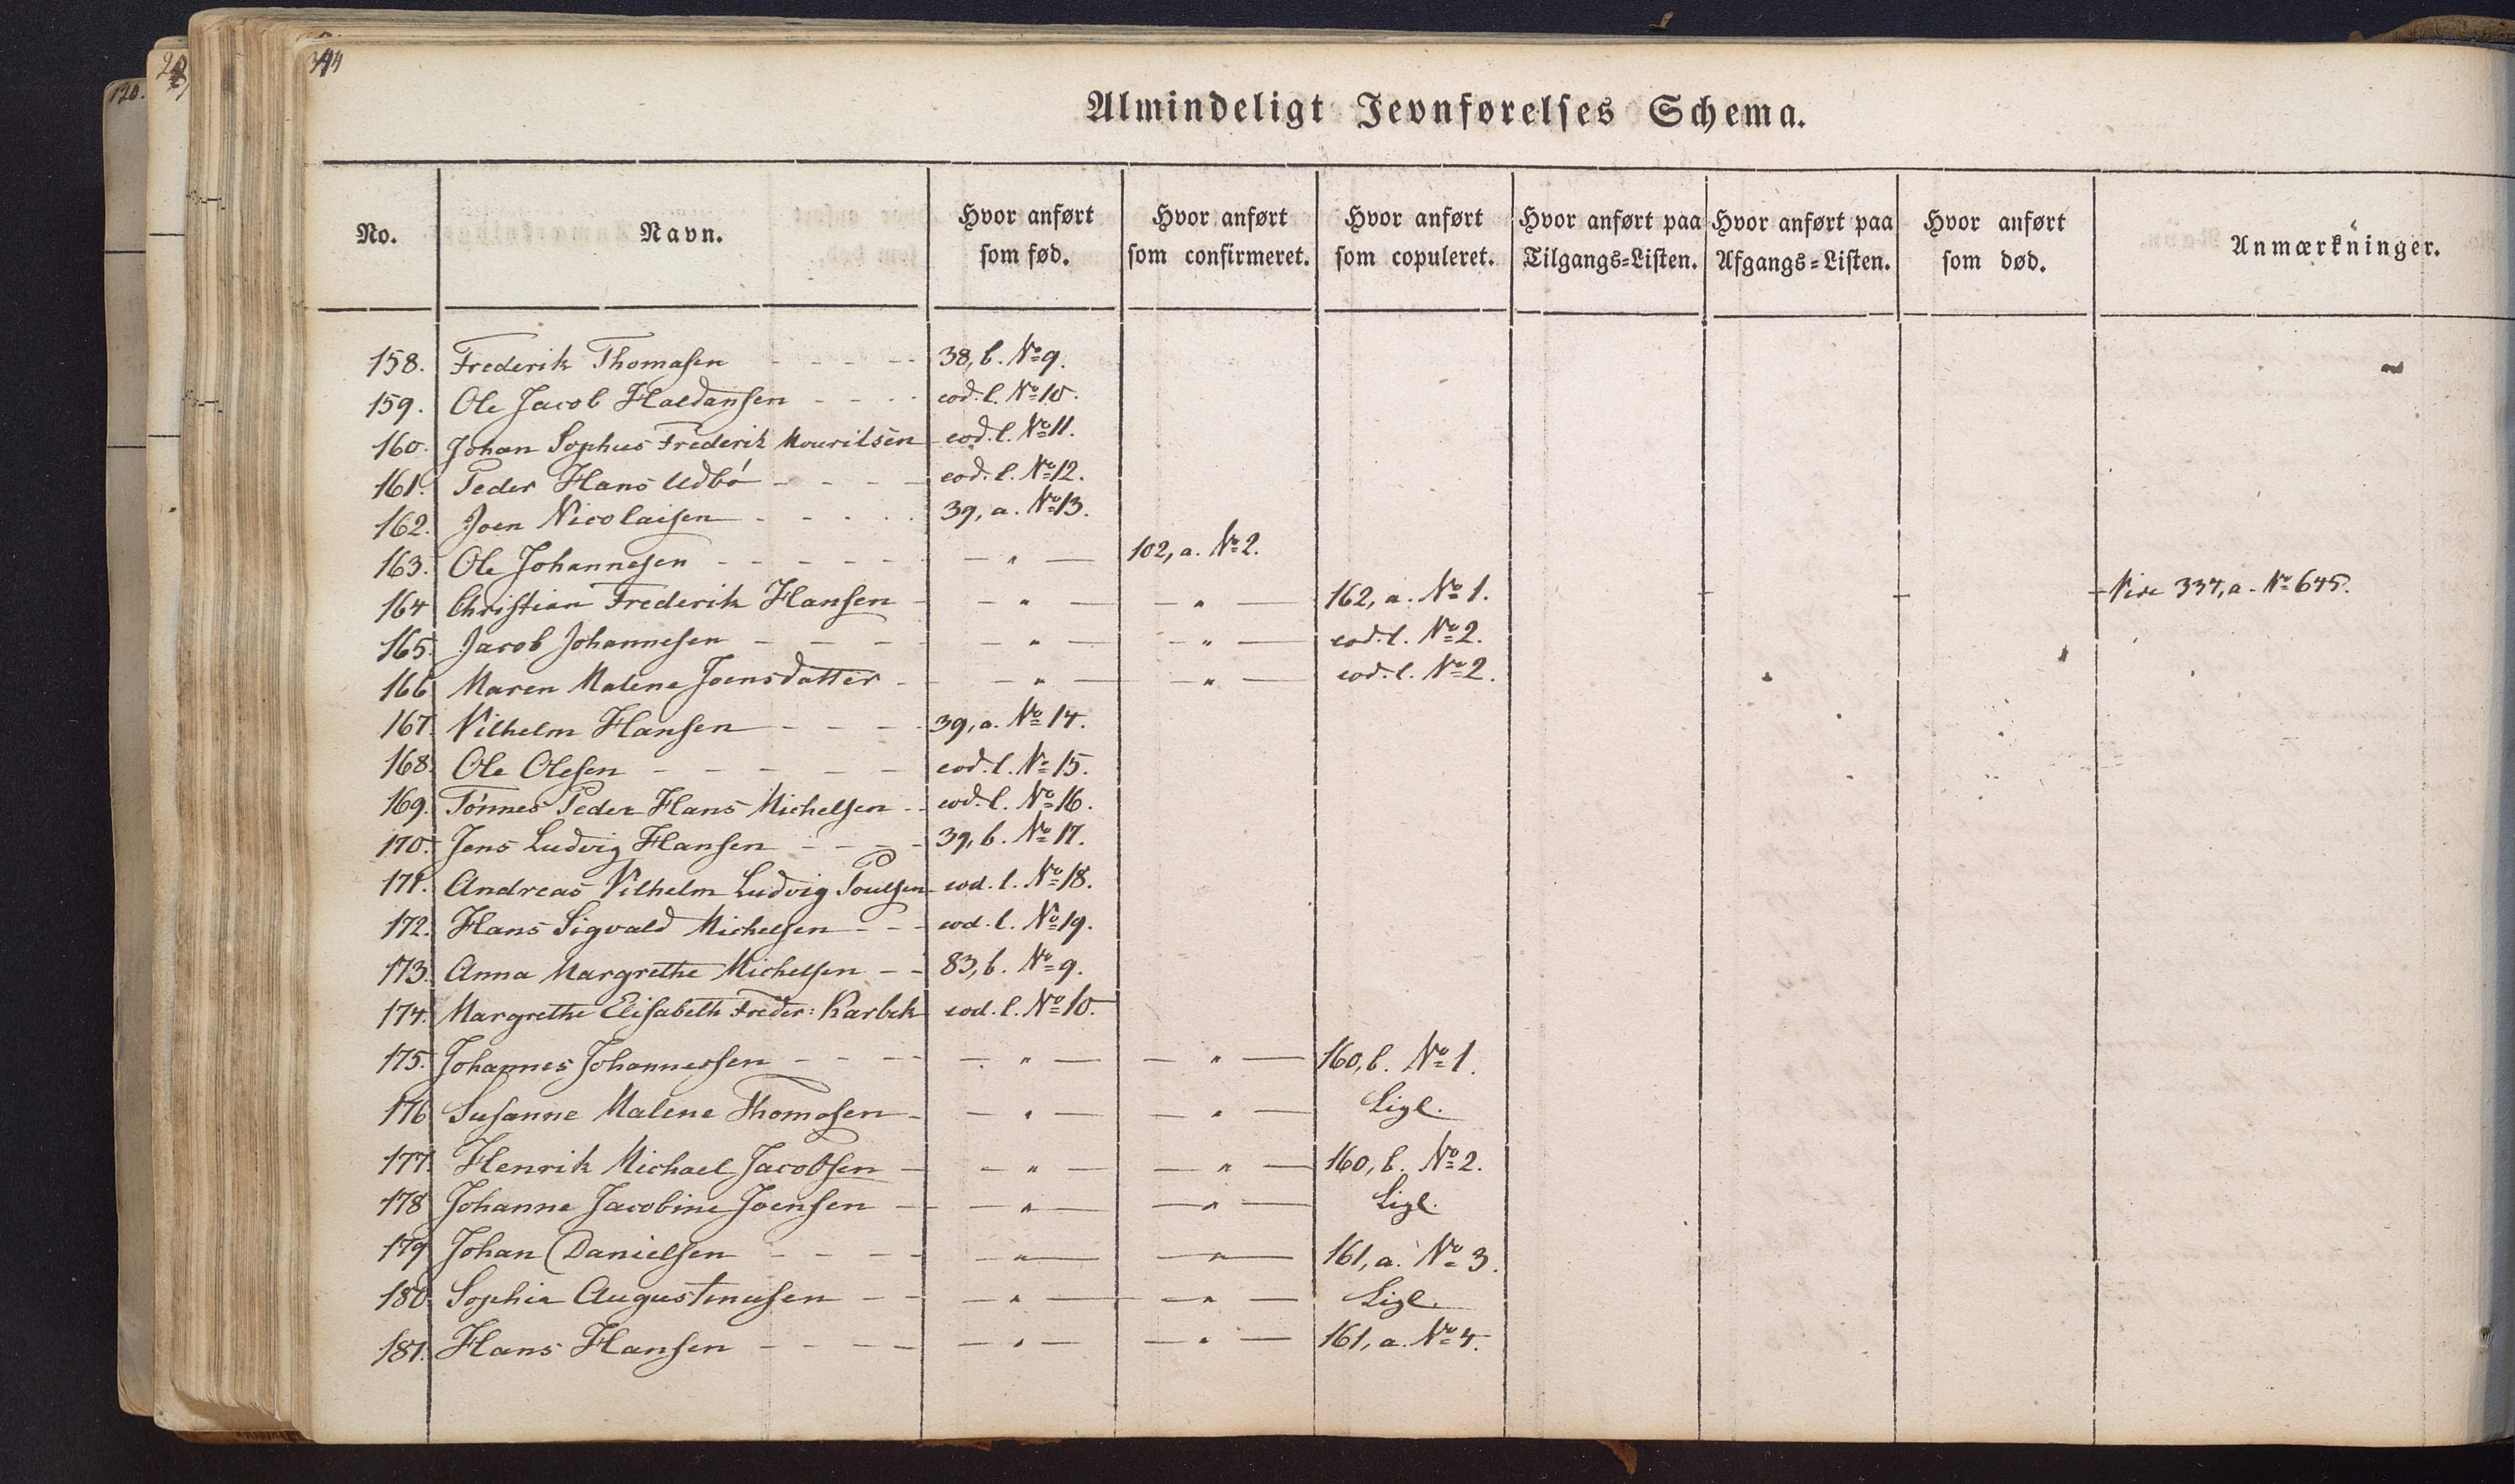 344
120.
Almindeligt Jevnførelses Schema.
No. Navn. Hvor anført som fød. Hvor anført som confirmeret. Hvor anført som copuleret. Hvor anført paa Tilgangs=Listen. Hvor anført paa Afgangs=Listen. Hvor anført som død. Anmærkninger.
158. Frederik Thomasen - - - - 38, b. No 9.
159. Ole Jacob Haldansen - - - eod. l. No 10.
160. Johan Sophus Frederik Mouritsen eod. l. No 11.
161. Peder Hans Udbó - - - - eod. l. No 12.
162. Joen Nicolaisen - - - - - 39, a. No 13.
163. Ole Johannesen - - - - - - " - 102, a. No 2.
164 Christian Frederik Hansen - - " - - " - 162, a. No 1. Vide 334, a. No 645.
165. Jacob Johannesen - - - - " - - " - eod. l. No 2.
166 Maren Malene Joensdatter - - " - - " - eod. l. No 2.
167. Vilhelm Hansen - - - - 39, a. No 14.
168. Ole Olesen - - - - - eod. l. No 15.
169. Tönnes Peder Hans Michelsen - eod. l. No 16.
170. Jens Ludvig Hansen - - - - 39, b. No 17.
171. Andreas Vilhelm Ludvig Poulsen eod. l. No 18.
172. Hans Sigvald Michelsen - - - eod. l. No 19.
173. Anna Margrethe Michelsen - - 83, b. No 9.
174. Margrethe Elisabeth Freder: Karbek eod. l. No 10.
175. Johannes Johannessen - - - - - " - - " - 160, b. No 1.
176 Susanne Malene Thomasen - - " - - " - Ligl.
177. Henrik Michael Jacobsen - - " - - " - 160, b. No 2.
178 Johanne Jacobine Joensen - - " - - " - Ligl.
179 Johan Danielsen - - - - - " - - " - 161, a. No 3.
180. Sophie Augustinusen - - - " - - " - Ligl.
181. Hans Hansen - - - - - " - - " - 161, a. No 4.